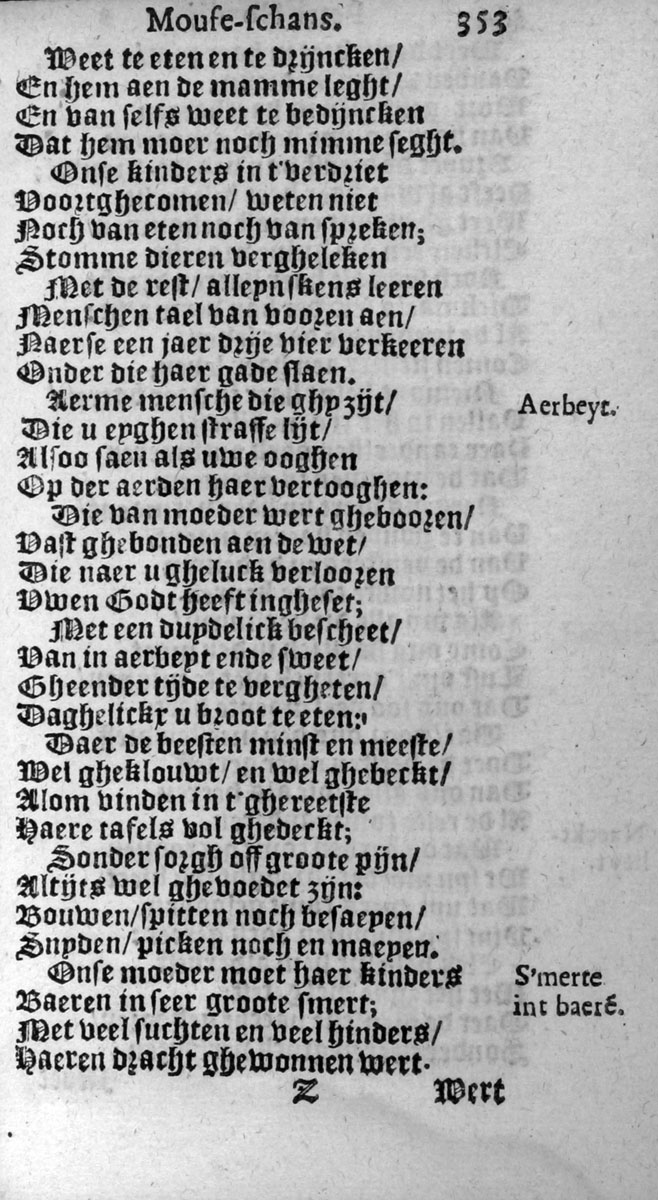 Mouse-schans. 353
Weet te eten en te drijncken/
En hem aen de mamme leght/
En van selfs weet te bedijncken
Dat hem moer noch mimme seght.
Onse kinders in t'verdriet
Voortghecomen/ weten niet
Noch van eten noch van spreken;
Stomme dieren vergheleken
Met de rest/ alleynskens leeren
Menschen tael van vooren aen/
Naerse een jaer drije vier verkeeren
Onder die haer gade slaen.
Aerme mensche die ghy zijt/ Aerbeyt.
Die u eyghen straffe lijt/
Alsoo saen als uwe ooghen
Op der aerden haer vertooghen:
Die van moeder wert ghebooren/
Vast ghebonden aen de wet/
Die naer u gheluck verlooren
Vwen Godt heeft ingheset;
Met een duydelick bescheet/
Van in aerbeyt ende sweet/
Gheender tijde te vergheten/
Daghelickx u broot te eten:
Daer de beesten minst en meeste/
Wel gheklouwt/ en wel ghebeckt/
Alom vinden in t'ghereetste
Haere tafels vol ghedeckt;
Sonder sorgh off groote pijn/
Altijts wel ghevoedet zijn:
Bouwen/ spitten noch besaeyen/
Snyden/ picken noch en maeyen.
Onse moeder moet haer kinders S'merte
Baeren in seer groote smert; int baerē.
Met veel suchten en veel hinders/
Haeren dracht ghewonnen wert.
Z Wert